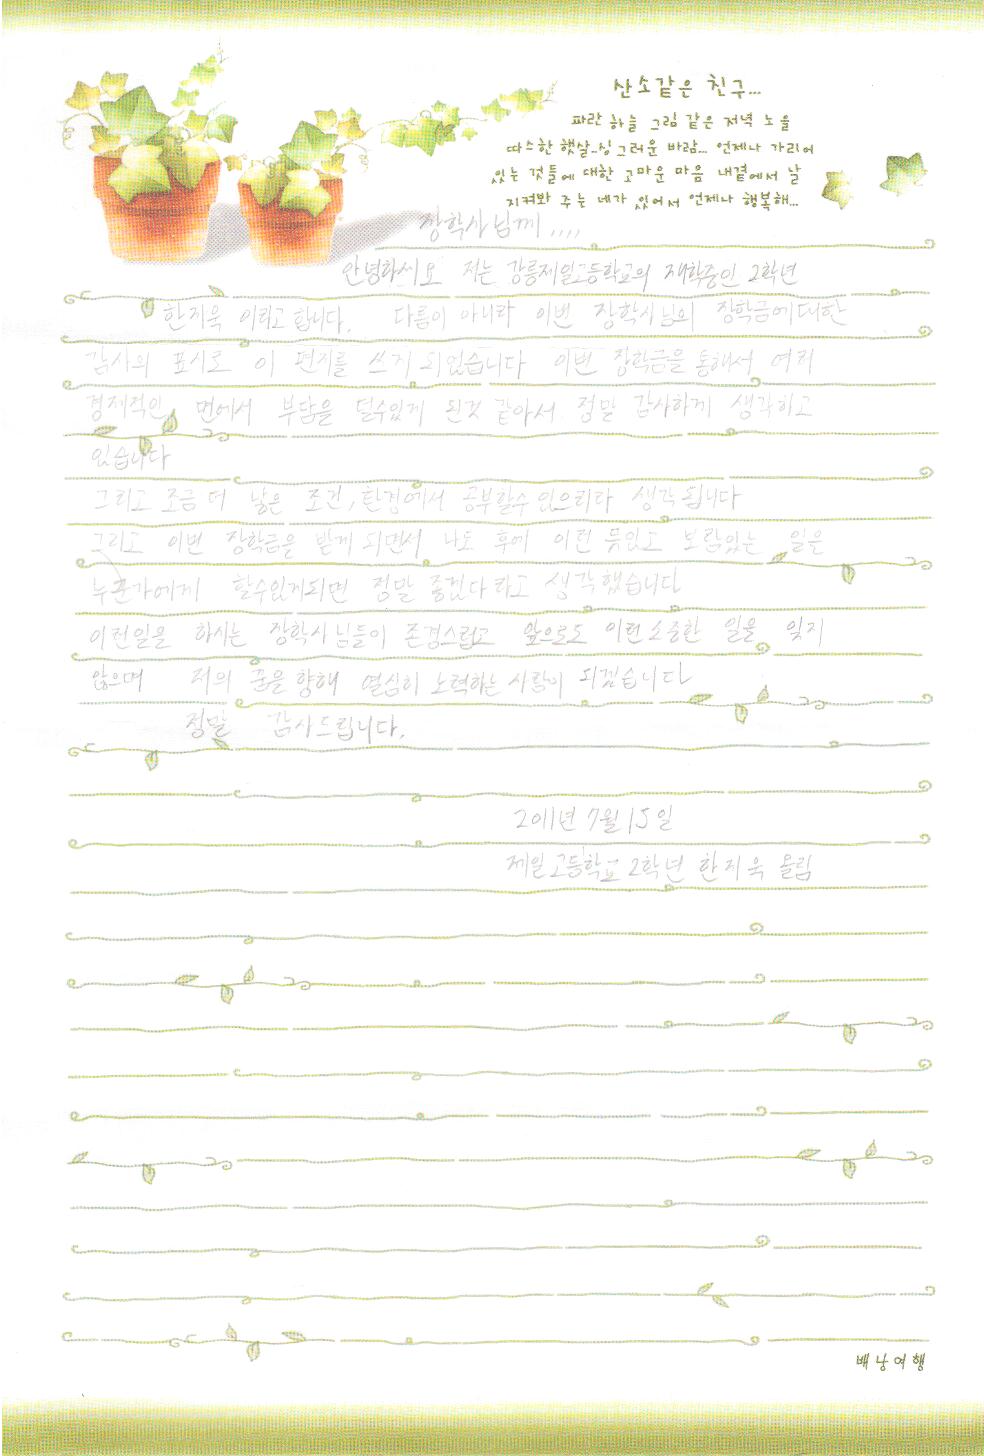 산소같은 친구...
파란 하늘 그림 같은 저녁 노을
따스한 햇살..싱그러운 바람... 언제나 가리어
있는 것들에 대한 고마운 마음 내곁에서 날
지켜봐 주는 네가 있어서 언제나 행복해...
장학사님께 ....
안녕하씨요 저는 강릉제일고등학교의 재학중인 2학년
한지욱 이라고 합니다. 다름이 아니라 이번 장학사님의 장학금에대한
감사의 표시로 이 편지를 쓰게 되었습니다 이번 장학금을 통해서 여러
경제적인 면에서 부담을 덜수있게 된것 같아서 정말 감사하게 생각하고
있습니다
그리고 조금 더 낳은 조건, 환경에서 공부할수 있으리라 생각 됩니다
그리고 이번 장학금을 받게 되면서 나도 후에 이런 뜻있고 보람있는 일을
누군가에게 할수있게되면 정말 좋겠다라고 생각했습니다
이런일을 하시는 장학사님들이 존경스럽고 앞으로도 이런소중한 일을 잊지
않으며 저의 꿈을 향해 열심히 노력하는 사람이 되겠습니다
정말 감사드립니다.
2011년 7월 15일
제일고등학교 2학년 한지욱 올림
배낭여행